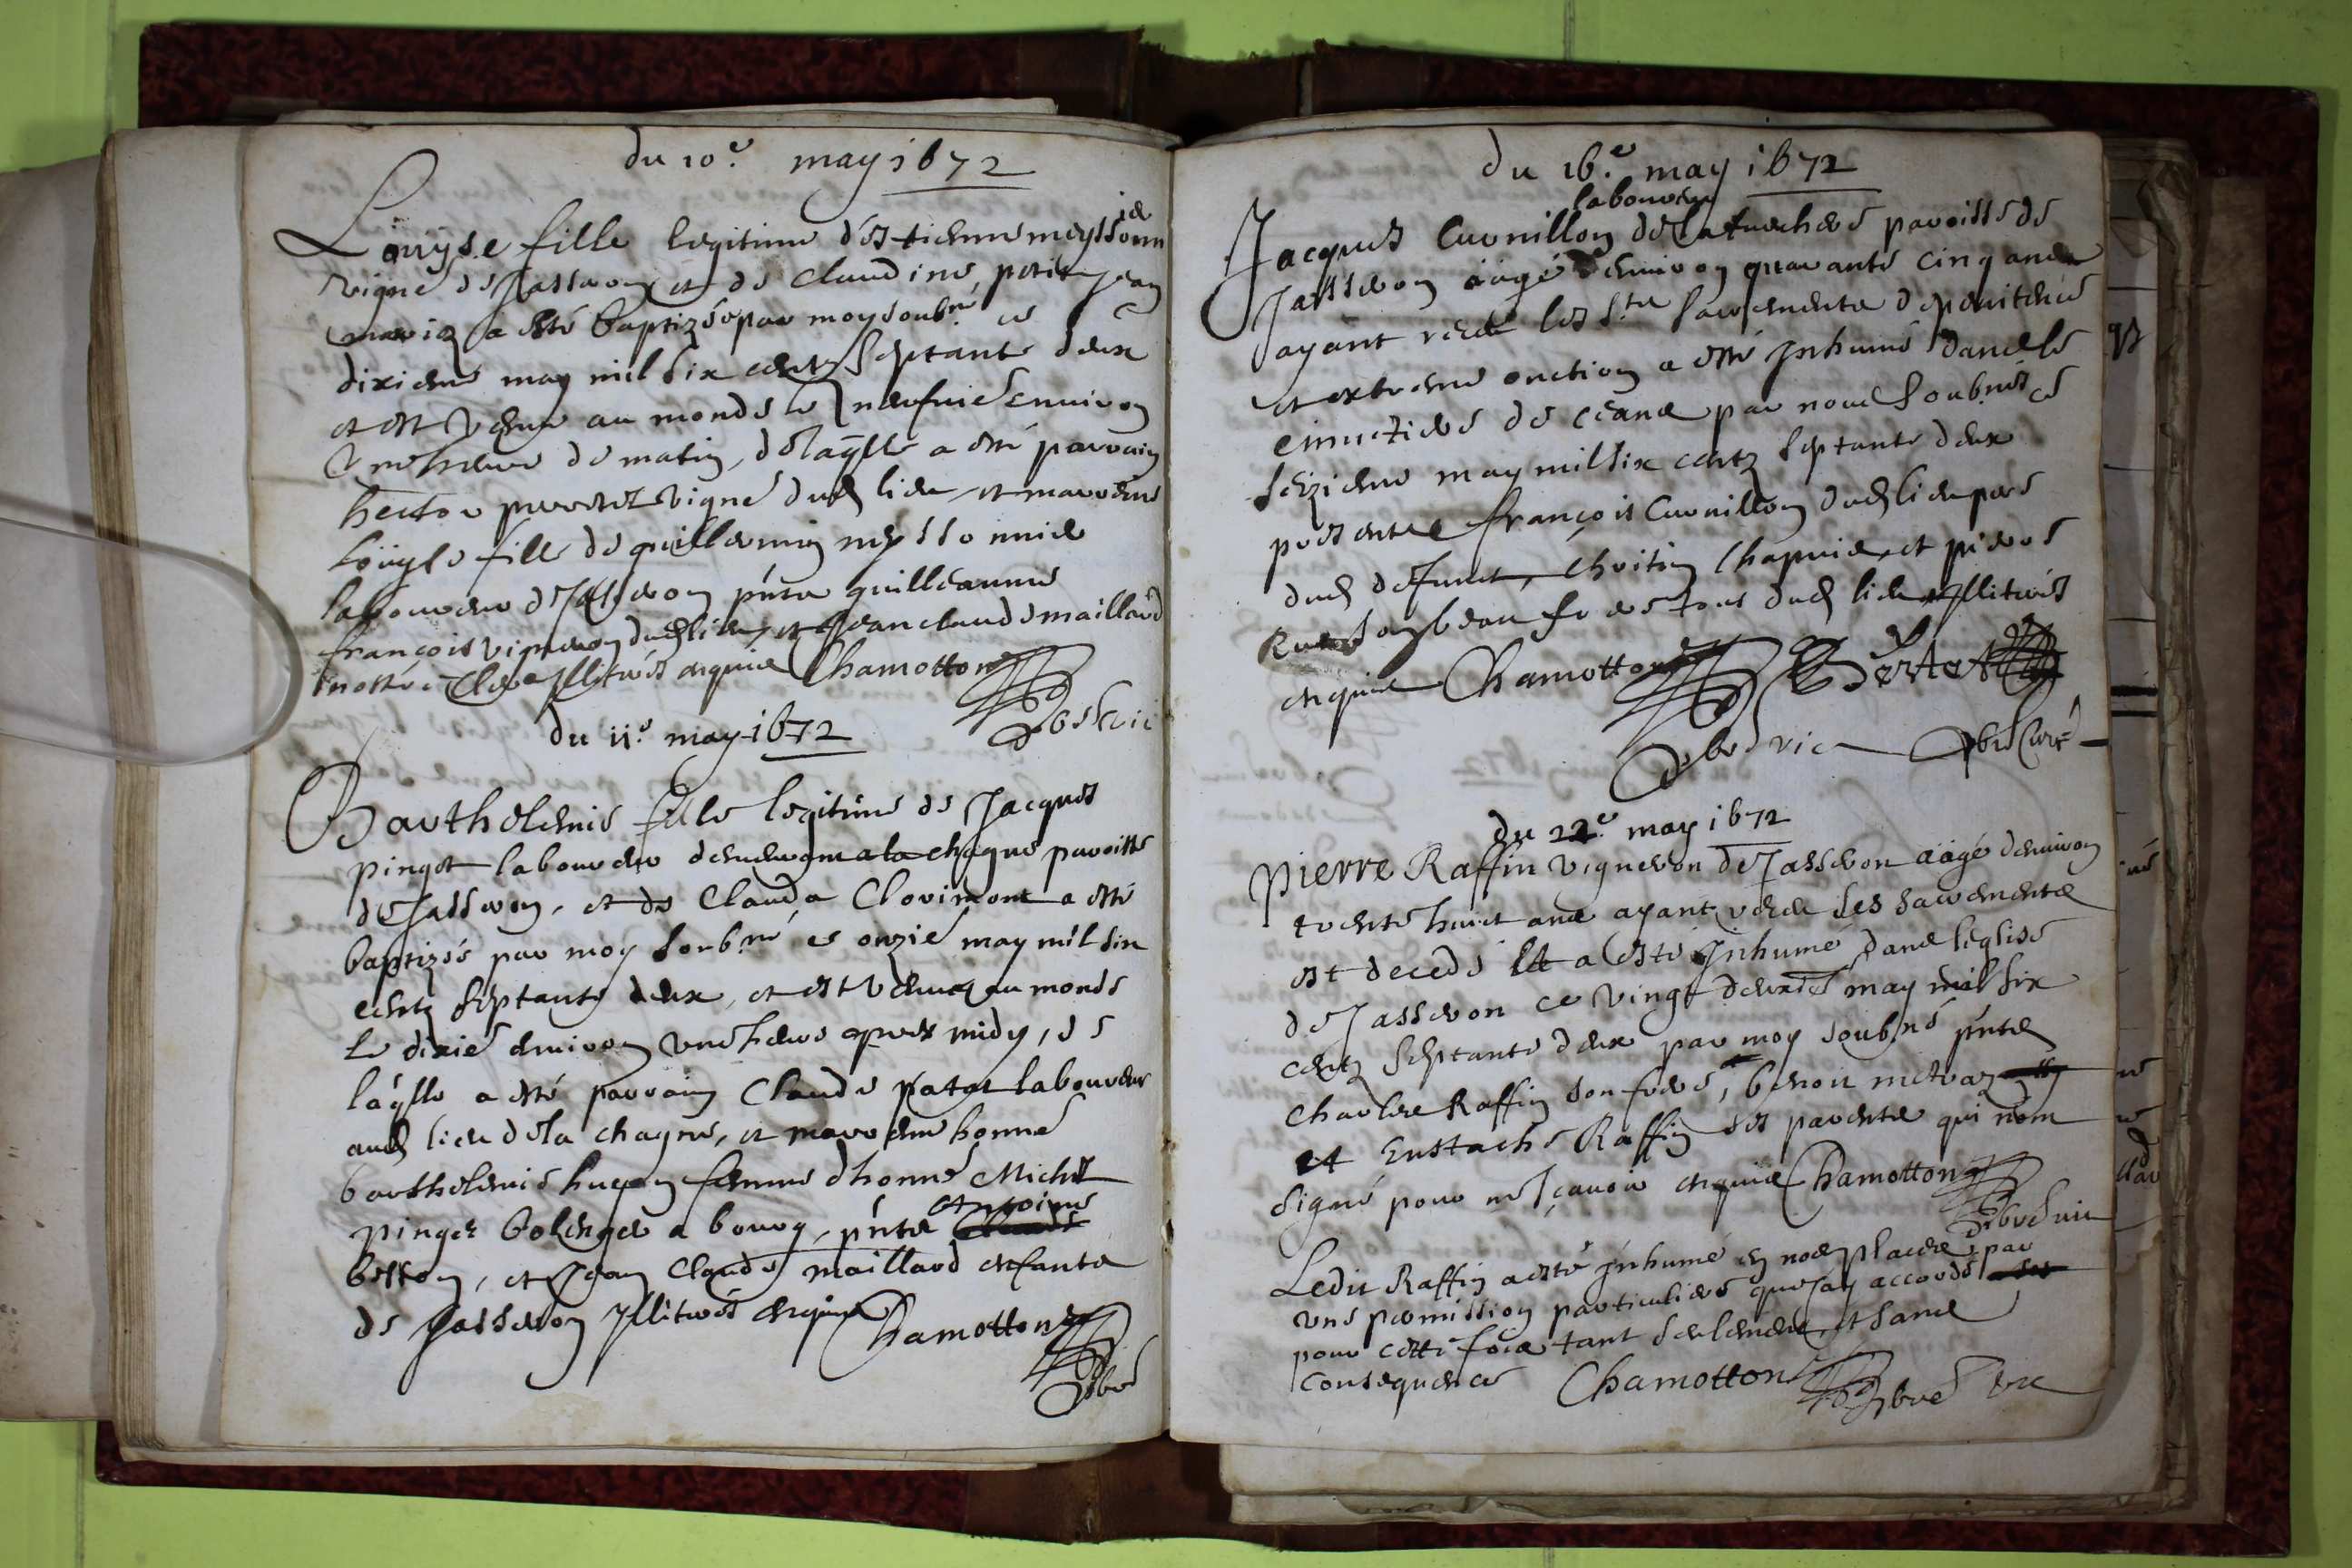 du 10e. may 1672
Louyse fille legitime d'estienne meyssonnier
vigne. de Jasseron et de Claudine petitjean
mariez a esté baptizée par moy soubné. ce
dixieme may mil six centz septante deux
et est venue au monde le neufuie environ
une heure de matin, de laqlle a esté parrain
hector perret vigne. dud lieu et marrene
Louyse fille de guillermin meyssonnier
laboureur de Jasseron pntz guilleaume
françois vigneron dud lieu, et Jean claude maillard
nostre clerc Illitrés enquis Chamotton
pbre vic
du 11e. may 1672
Barthelemie fille legitime de Jacques
pingot laboureur demeurant a la chagne paroisse
de Jasseron, et de Clauda Clorimont a esté
baptizée par moy soubné ce onzie may mil six
centz septante deux, et est venue au monde
le dixie environ une heure apres midy, de
laqlle a esté parrain Claude patot laboureur
aud lieu de la chagne, et marrene honne
barthelemie hugon femme d'honne Michel
pinget bolenger a bourg, pntz Antoine
besson, et Jean Claude maillard enfants
de Jasseron Illitrés enquis Chamotton
pbre
du 16e. may 1672
laboureur
Jacques Curnillon de la paroisse de
Jasseron aagé d'environ quarante cinq ans
ayant receu les sts sacrements de penitence
et extreme onction a esté Inhumé dans le
cimetiere de ceans par nous soubnes ce
seizieme may mil six centz septante deux
presents françois Curnillon dud lieu pere
dud defunct, Chapuis, et pierre
son beau frere tous dud lieu Illitrés
enquis Chamotton
pbre vic pbre Curé
du 22e. may 1672
Pierre Raffin vigneron de Jasseron aagé d'environ
trente huict ans ayant receu les sacrements
est decedé et a esté Inhumé dans leglise
de Jasseron ce vingt deuxie may mil six
centz septante deux par moy soubné pntz
Charles Raffin son frere, benoit
et Eustache Raffin ses parents qui nont
signé pour ne sçavoir enquis Chamotton
pbre vic
Ledit Raffin a esté Inhumé en nos places par
une permission particuliere que Jay accordé
pour cette fois tant seulement et sans
consequence Chamotton pbre vic